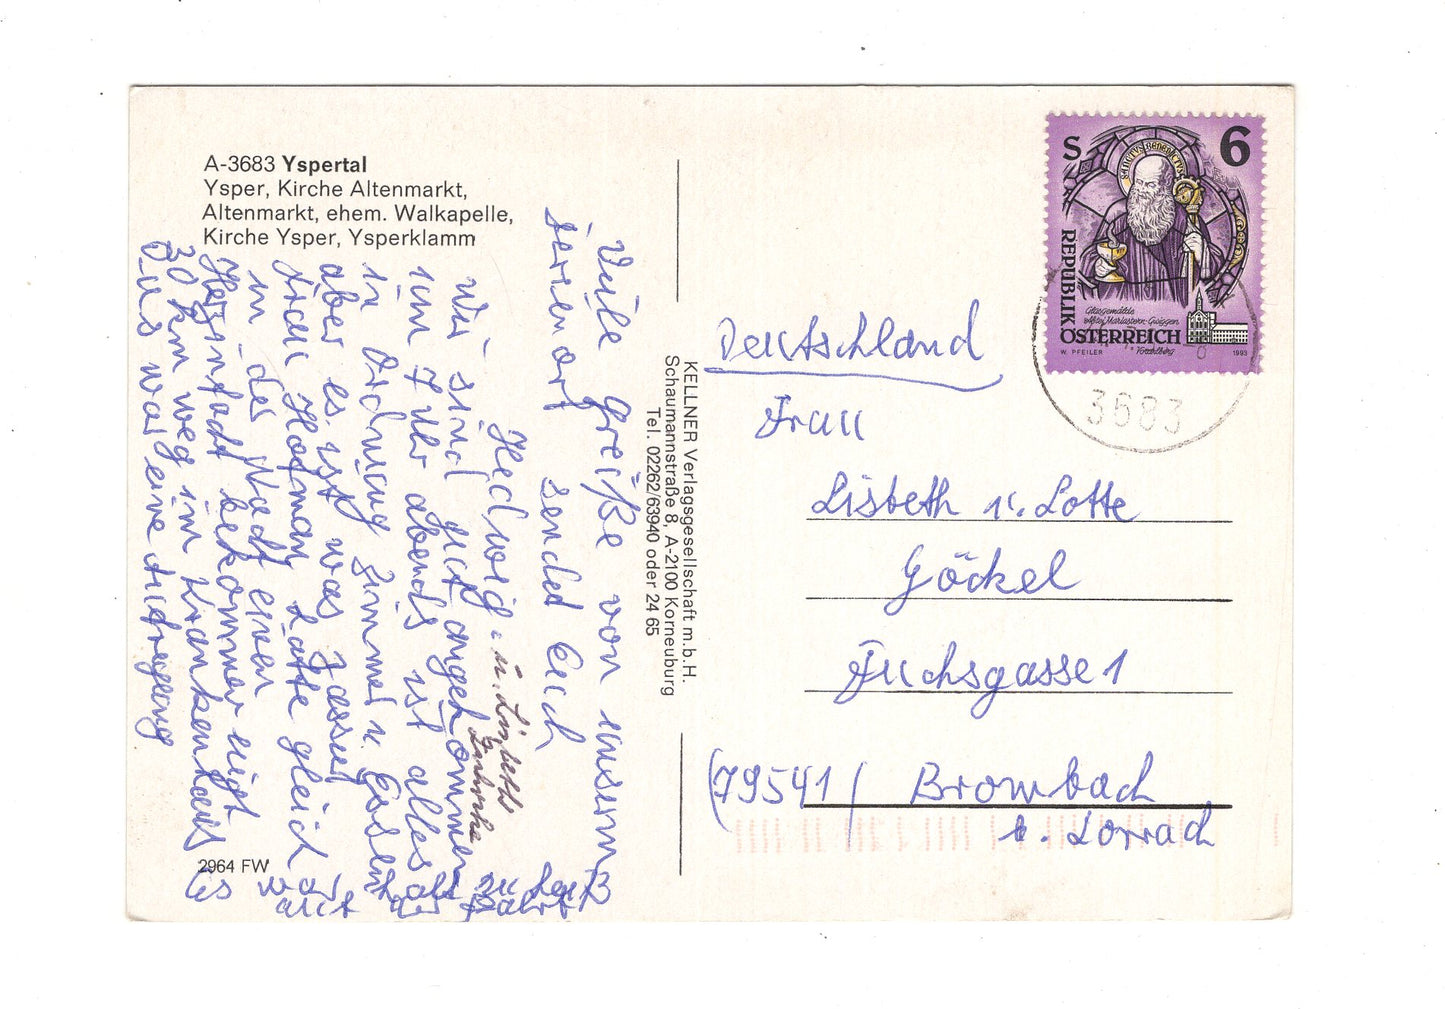 A-3683 Yspertal
Ysper, Kirche Altenmarkt,
Altenmarkt, ehem. Walkapelle,
Kirche Ysper, Ysperklamm
Viele Grüße von unserm
sendet Euch
Hedwig u. Lisbeth
Wir sind gut angekommen
um 7 Uhr abends ist alles
in Ordnung Zimmer u. Essen
aber es ist was passiert
Frau Hofman hatte gleich
in der Nacht einen
Herzinfarkt bekommen liegt
30 km weg im Krankenhaus
Das war eine Aufregung
Es war zu heiß
auf der Fahrt
2964 FW
KELLNER Verlagsgesellschaft m.b.H.
Schaumannstraße 8, A-2100 Korneuburg
Tel. 02262/63940 oder 24 65
S 6
SANCTVS BENEDICTVS
REPUBLIK
ÖSTERREICH
Glasgemälde
Abtei Mariastern-Gwiggen
Vorarlberg
W. PFEILER
1993
3683
Deutschland
Frau
Lisbeth u. Lotte
Göckel
Fuchsgasse 1
(79541) Brombach
b. Lörrach